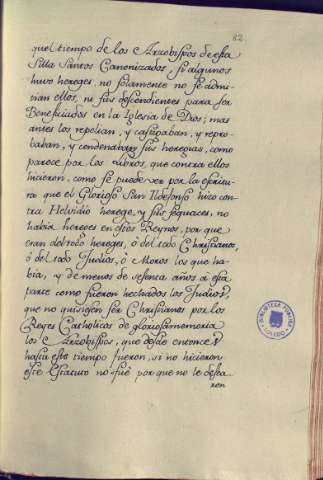 82
quel tiempo de los Arzobispos de esta
Silla Santos Canonizados, si algunos
huvo hereges, no solamente no se admi-
tian ellos, ni sus descendientes para ser
Beneficiados en la Iglesia de Dios; mas
antes los repelian, y castigaban, y repro-
baban, y condenaban sus heregias, como
parece por los Libros, que contra ellos
hicieron, como se puede ver por la escritu-
ra que el Glorioso San Ildefonso hizo con-
tra Helvidio herege, y sus sequaces, no
habia hereges en estos Reynos, por que
eran del todo hereges, ó del todo Christianos,
ó del todo Judios, ó Moros los que ha-
bia, y de menos de sesenta años a esta
parte como fueron hechados los Judios,
que no quisieron ser Christianos por los
Reyes Catholicos de gloriosa memoria
los Arzobispos, que desde entonces
hasta este tiempo fueron, si no hicieron
este Estatuto no fuè por que no le desea-
ron
BIBLIOTECA PUBLICA
TOLEDO